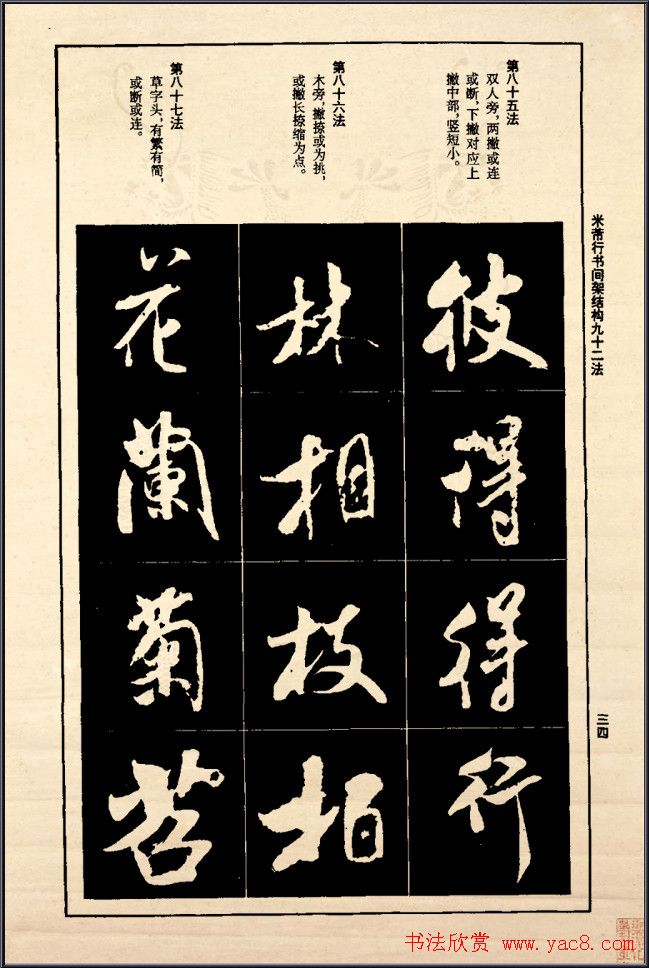 米芾行书间架结构九十二法
第八十五法
双人旁，两撇或连
或断，下撇对应上
撇中部，竖短小。
第八十六法
木旁，撇捺或为挑，
或撇长捺缩为点。
第八十七法
草字头，有繁有简，
或断或连。
彼得得行
林相枝柏
花蘭菊苕
三四
书法欣赏 www.yac8.com